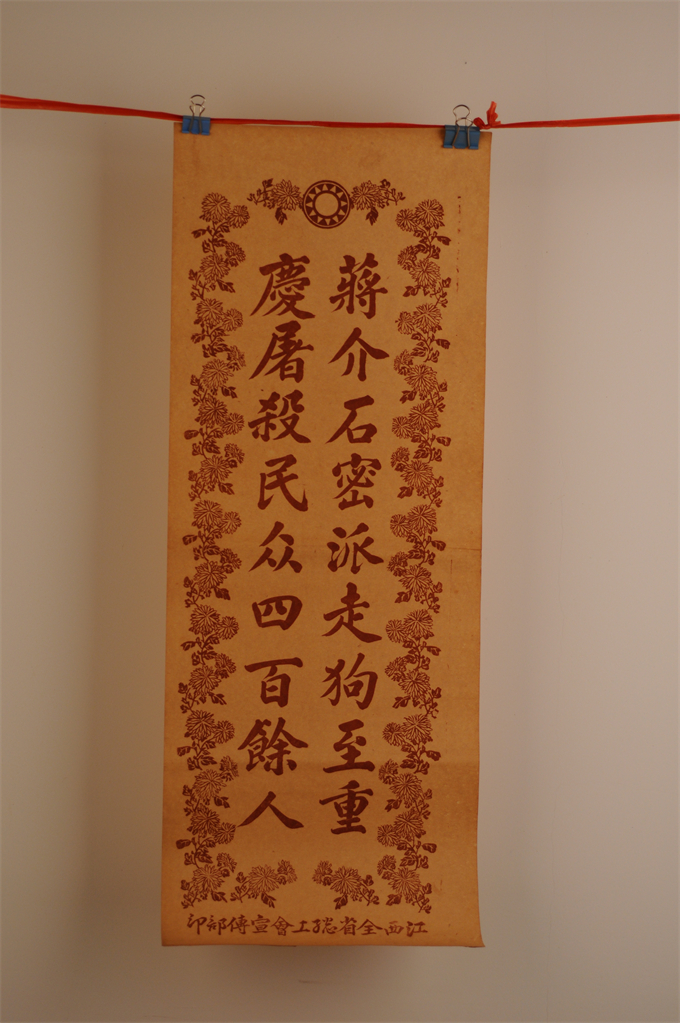 蔣介石密派走狗至重
慶屠殺民众四百餘人
江西全省总工會宣傳部印